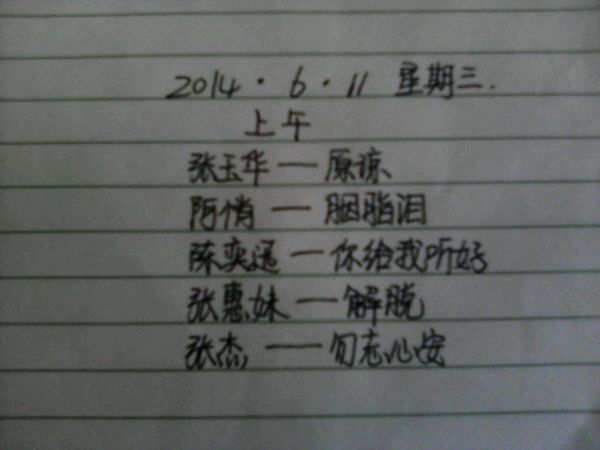 2014·6·11 星期三.
上午
张玉华——原谅
阿悄——胭脂泪
陈奕迅——你给我听好
张惠妹——解脱
张杰——勿忘心安